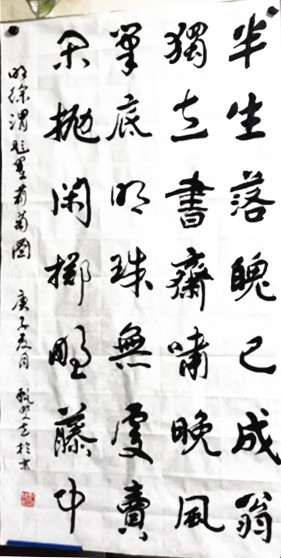 半生落魄已成翁
獨立書齋嘯晚風
筆底明珠無處賣
閑拋閑擲野藤中
明徐渭題墨葡萄圖
庚子夏月
於京